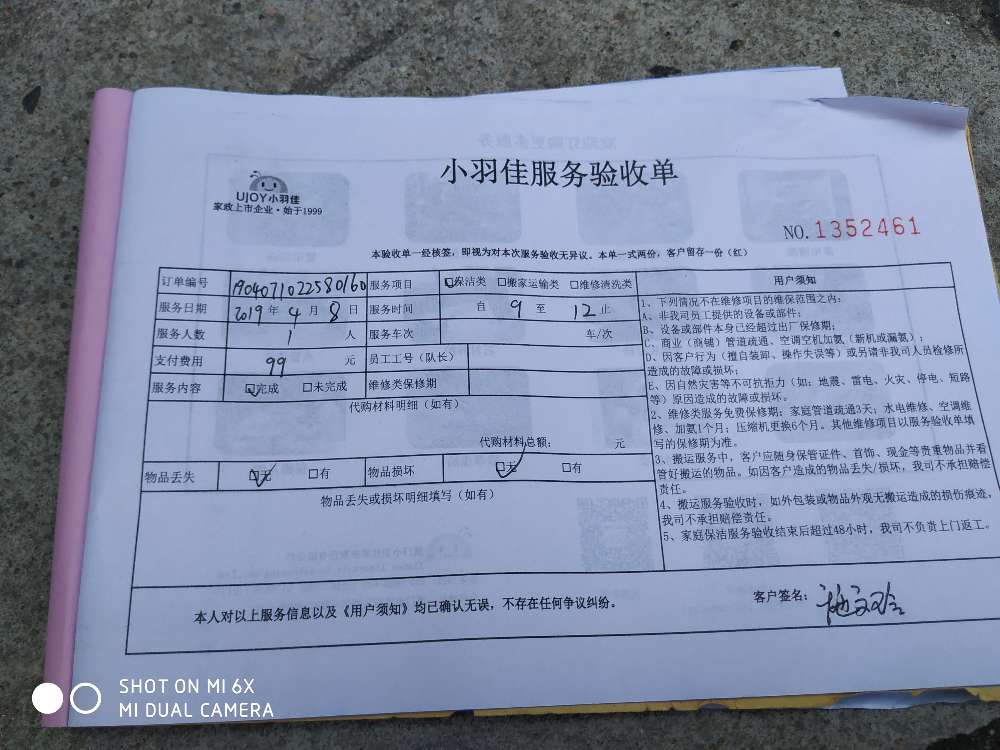 小羽佳服务验收单
UJOY小羽佳
家政上市企业·始于1999
NO.1352461
本验收单一经核签，即视为对本次服务验收无异议。本单一式两份，客户留存一份（红）
订单编号 1904071022580160 服务项目 ☑保洁类 □搬家运输类 □维修清洗类
服务日期 2019年4月8日 服务时间 自9至12止
服务人数 1人 服务车次 车/次
支付费用 99元 员工工号（队长）
服务内容 ☑完成 □未完成 维修类保修期
代购材料明细（如有）
代购材料总额： 元
物品丢失 ☑无 □有 物品损坏 ☑无 □有
物品丢失或损坏明细填写（如有）
用户须知
1、下列情况不在维修项目的维保范围之内：
A、非我司员工提供的设备或部件；
B、设备或部件本身已经超过出厂保修期；
C、商业（商铺）管道疏通、空调空机加氨（新机或漏氨）；
D、因客户行为（擅自装卸、操作失误等）或另请非我司人员检修所
造成的故障或损坏；
E、因自然灾害等不可抗拒力（如：地震、雷电、火灾、停电、短路
等）原因造成的故障或损坏。
2、维修类服务免费保修期；家庭管道疏通3天；水电维修、空调维
修、加氨1个月；压缩机更换6个月。其他维修项目以服务验收单填
写的保修期为准。
3、搬运服务中，客户应随身保管证件、首饰、现金等贵重物品并看
管好搬运的物品。如因客户造成的物品丢失/损坏，我司不承担赔偿
责任。
4、搬运服务验收时，如外包装或物品外观无搬运造成的损伤痕迹，
我司不承担赔偿责任。
5、家庭保洁服务验收结束后超过48小时，我司不负责上门返工。
本人对以上服务信息以及《用户须知》均已确认无误，不存在任何争议纠纷。
客户签名：
SHOT ON MI 6X
MI DUAL CAMERA